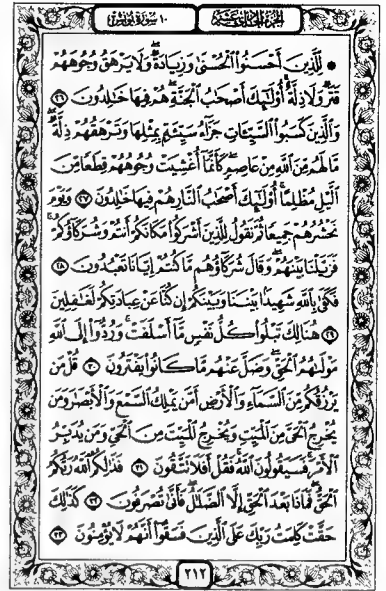 الجزء الحادي عشر
١٠ سورة يونس
۞ لِّلَّذِينَ أَحْسَنُوا۟ ٱلْحُسْنَىٰ وَزِيَادَةٌ وَلَا يَرْهَقُ وُجُوهَهُمْ
قَتَرٌ وَلَا ذِلَّةٌ أُو۟لَٰٓئِكَ أَصْحَٰبُ ٱلْجَنَّةِ هُمْ فِيهَا خَٰلِدُونَ ٢٦
وَٱلَّذِينَ كَسَبُوا۟ ٱلسَّيِّـَٔاتِ جَزَآءُ سَيِّئَةٍۭ بِمِثْلِهَا وَتَرْهَقُهُمْ ذِلَّةٌ
مَّا لَهُم مِّنَ ٱللَّهِ مِنْ عَاصِمٍ كَأَنَّمَآ أُغْشِيَتْ وُجُوهُهُمْ قِطَعًا مِّنَ
ٱلَّيْلِ مُظْلِمًا أُو۟لَٰٓئِكَ أَصْحَٰبُ ٱلنَّارِ هُمْ فِيهَا خَٰلِدُونَ ٢٧ وَيَوْمَ
نَحْشُرُهُمْ جَمِيعًا ثُمَّ نَقُولُ لِلَّذِينَ أَشْرَكُوا۟ مَكَانَكُمْ أَنتُمْ وَشُرَكَآؤُكُمْ
فَزَيَّلْنَا بَيْنَهُمْ وَقَالَ شُرَكَآؤُهُم مَّا كُنتُمْ إِيَّانَا تَعْبُدُونَ ٢٨
فَكَفَىٰ بِٱللَّهِ شَهِيدًۢا بَيْنَنَا وَبَيْنَكُمْ إِن كُنَّا عَنْ عِبَادَتِكُمْ لَغَٰفِلِينَ
٢٩ هُنَالِكَ تَبْلُوا۟ كُلُّ نَفْسٍ مَّآ أَسْلَفَتْ وَرُدُّوٓا۟ إِلَى ٱللَّهِ
مَوْلَىٰهُمُ ٱلْحَقِّ وَضَلَّ عَنْهُم مَّا كَانُوا۟ يَفْتَرُونَ ٣٠ قُلْ مَن
يَرْزُقُكُم مِّنَ ٱلسَّمَآءِ وَٱلْأَرْضِ أَمَّن يَمْلِكُ ٱلسَّمْعَ وَٱلْأَبْصَٰرَ وَمَن
يُخْرِجُ ٱلْحَىَّ مِنَ ٱلْمَيِّتِ وَيُخْرِجُ ٱلْمَيِّتَ مِنَ ٱلْحَىِّ وَمَن يُدَبِّرُ
ٱلْأَمْرَ فَسَيَقُولُونَ ٱللَّهُ فَقُلْ أَفَلَا تَتَّقُونَ ٣١ فَذَٰلِكُمُ ٱللَّهُ رَبُّكُمُ
ٱلْحَقُّ فَمَاذَا بَعْدَ ٱلْحَقِّ إِلَّا ٱلضَّلَٰلُ فَأَنَّىٰ تُصْرَفُونَ ٣٢ كَذَٰلِكَ
حَقَّتْ كَلِمَتُ رَبِّكَ عَلَى ٱلَّذِينَ فَسَقُوٓا۟ أَنَّهُمْ لَا يُؤْمِنُونَ ٣٣
٢١٢